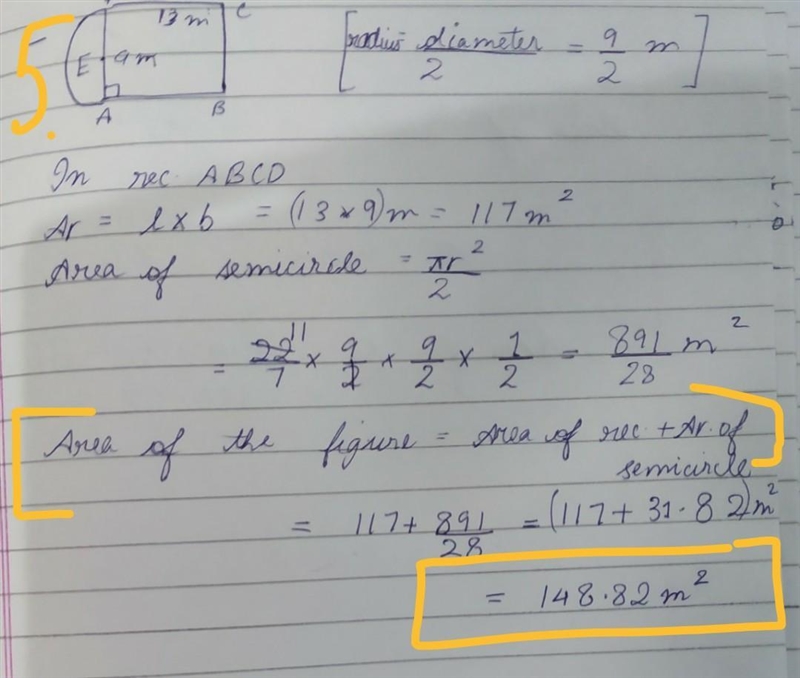 5.
13 m C
E 9 m
A B
[radius = diameter/2 = 9/2 m]
In rec. ABCD
Ar = l × b = (13 × 9)m = 117 m²
Area of semicircle = πr²/2
= 22/7 11 × 9/2 × 9/2 × 1/2 = 891/28 m²
Area of the figure = Area of rec. + Ar. of
semicircle
= 117 + 891/28 = (117 + 31.82) m²
= 148.82 m²